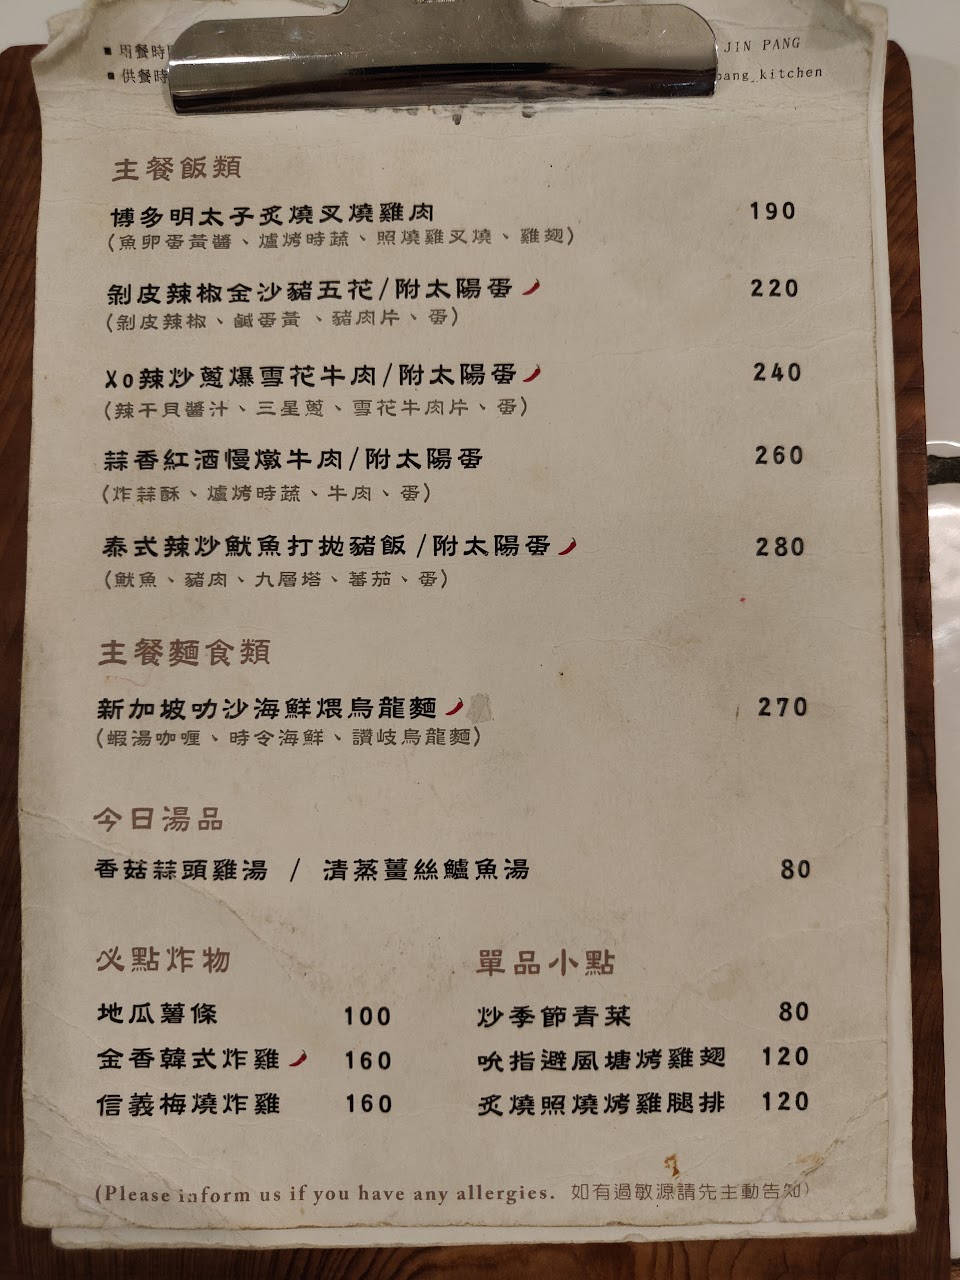 ▪ 用餐時
JIN PANG
▪ 供餐時
pang_kitchen
主餐飯類
博多明太子炙燒叉燒雞肉 190
(魚卵蛋黃醬、爐烤時蔬、照燒雞叉燒、雞翅)
剝皮辣椒金沙豬五花/附太陽蛋 220
(剝皮辣椒、鹹蛋黃、豬肉片、蛋)
Xo辣炒蔥爆雪花牛肉/附太陽蛋 240
(辣干貝醬汁、三星蔥、雪花牛肉片、蛋)
蒜香紅酒慢燉牛肉/附太陽蛋 260
(炸蒜酥、爐烤時蔬、牛肉、蛋)
泰式辣炒魷魚打拋豬飯/附太陽蛋 280
(魷魚、豬肉、九層塔、蕃茄、蛋)
主餐麵食類
新加坡叻沙海鮮煨烏龍麵 270
(蝦湯咖喱、時令海鮮、讚岐烏龍麵)
今日湯品
香菇蒜頭雞湯 / 清蒸薑絲鱸魚湯 80
必點炸物
地瓜薯條 100
金香韓式炸雞 160
信義梅燒炸雞 160
單品小點
炒季節青菜 80
吮指避風塘烤雞翅 120
炙燒照燒烤雞腿排 120
(Please inform us if you have any allergies. 如有過敏源請先主動告知)